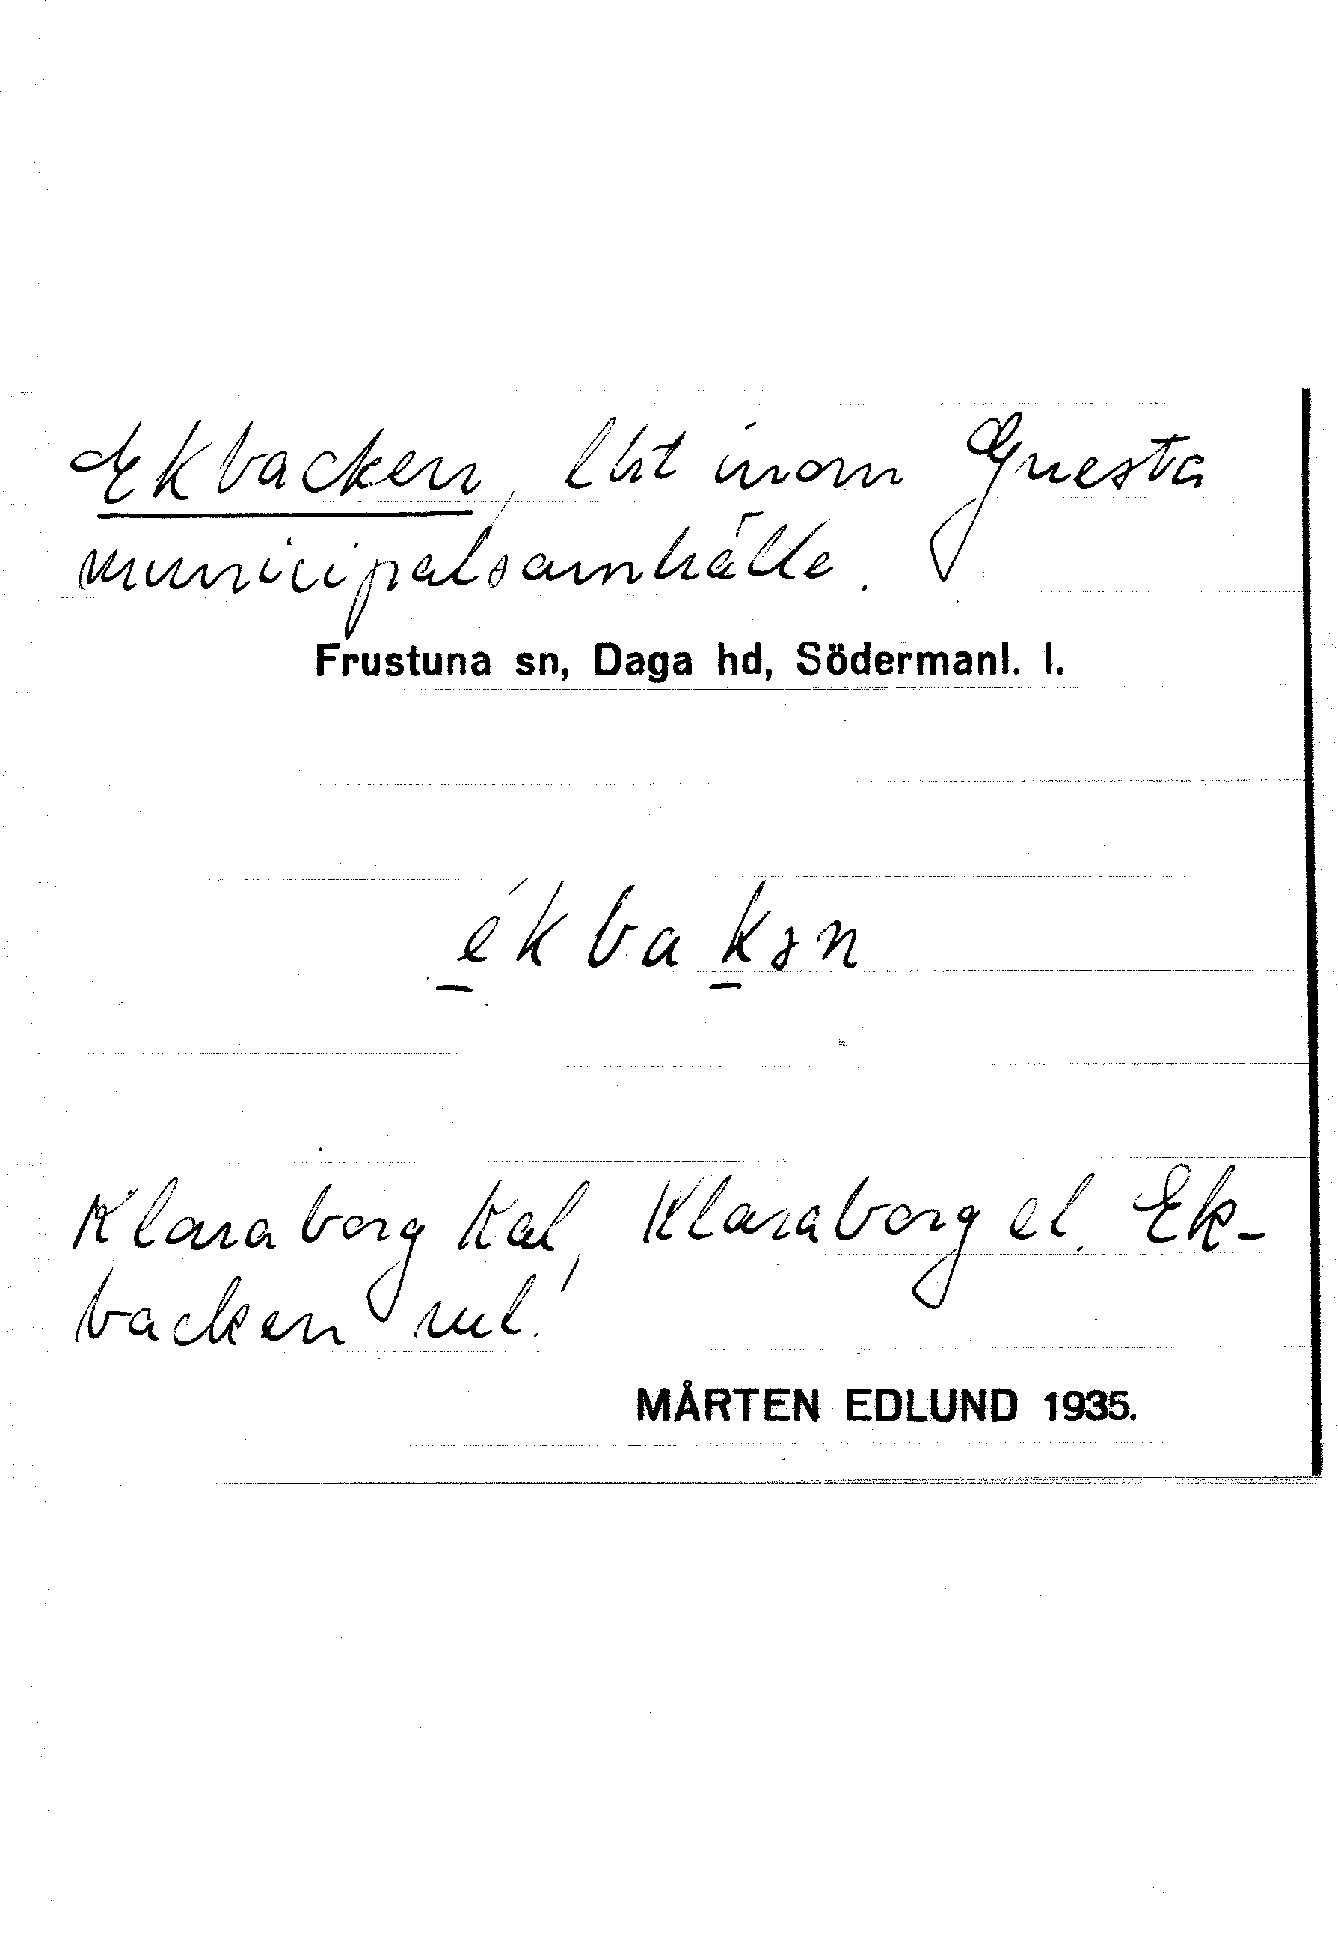 Ekbacken, lht inom Gnesta
municipalsamhälle.
Frustuna sn, Daga hd, Södermanl. l.
e̱ ́k ba ḵən
Klaraborg Kal, Klaraborg el. Ek-
backen
MÅRTEN EDLUND 1935.